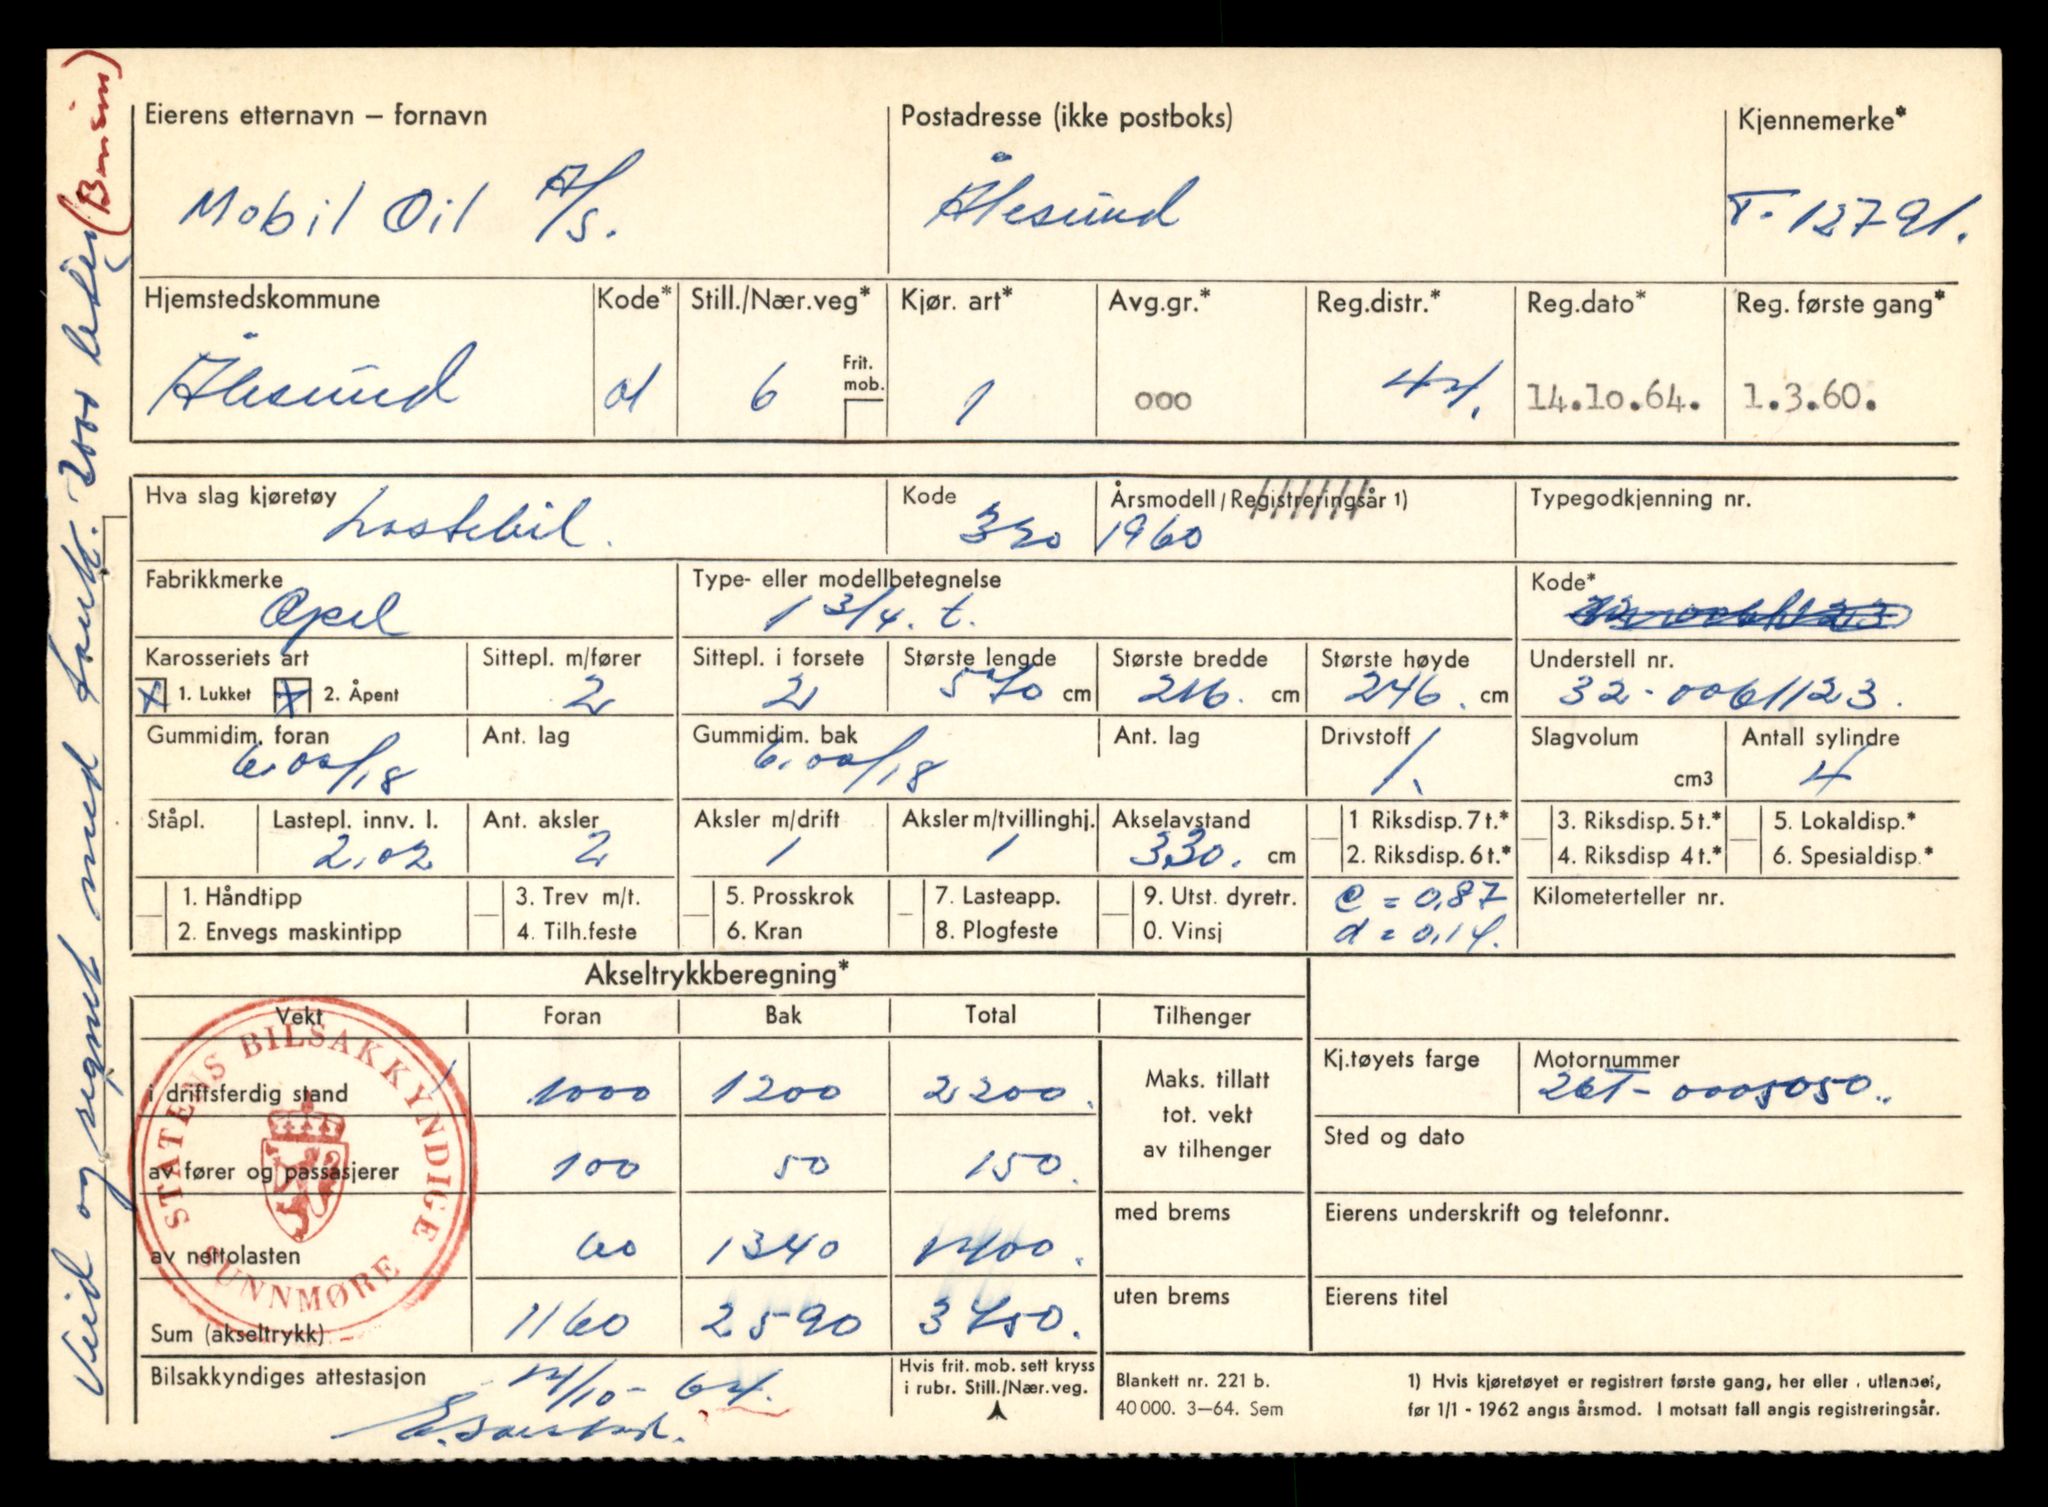 Eierens etternavn – fornavn
Mobil Oil A/S.
Postadresse (ikke postboks)
Ålesund
Kjennemerke*
T-12791.
Hjemstedskommune
Ålesund
Kode*
01
Still./Nær.veg*
6
Frit. mob.
Kjør. art*
1
Avg.gr.*
000
Reg.distr.*
44.
Reg.dato*
14.10.64.
Reg. første gang*
1.3.60.
Hva slag kjøretøy
Lastebil.
Kode
320
Årsmodell/Registreringsår 1)
1960
Typegodkjenning nr.
Fabrikkmerke
Opel
Type- eller modellbetegnelse
1 3/4. t.
Kode*
Karosseriets art
X 1. Lukket X 2. Åpent
Sittepl. m/fører
2
Sittepl. i forsete
2
Største lengde
570 cm
Største bredde
216. cm
Største høyde
246. cm
Understell nr.
32-0061123.
Gummidim. foran
6.00/18
Ant. lag
Gummidim. bak
6.00/18
Ant. lag
Drivstoff
1.
Slagvolum
cm3
Antall sylindre
4
Ståpl.
Lastepl. innv. l.
2.02
Ant. aksler
2
Aksler m/drift
1
Aksler m/tvillinghj.
1
Akselavstand
330. cm
1 Riksdisp. 7 t.*
2. Riksdisp. 6 t.*
3. Riksdisp. 5 t.*
4. Riksdisp 4 t.*
5. Lokaldisp.*
6. Spesialdisp.*
1. Håndtipp
2. Envegs maskintipp
3. Trev m/t.
4. Tilh.feste
5. Prosskrok
6. Kran
7. Lasteapp.
8. Plogfeste
9. Utst. dyretr.
0. Vinsj
c = 0,87
d = 0,14.
Kilometerteller nr.
Akseltrykkberegning*
Vekt Foran Bak Total Tilhenger
i driftsferdig stand 1000 1200 2200.
av fører og passasjerer 100 50 150.
av nettolasten 60 1340 1400.
Sum (akseltrykk) 1160 2590 3750.
Maks. tillatt
tot. vekt
av tilhenger
med brems
uten brems
Kj.tøyets farge
Motornummer
26T-0005050.
Sted og dato
Eierens underskrift og telefonnr.
Eierens titel
Bilsakkyndiges attestasjon
14/10-64.
Hvis frit. mob. sett kryss
i rubr. Still./Nær.veg.
Blankett nr. 221 b.
40 000. 3–64. Sem
1) Hvis kjøretøyet er registrert første gang, her eller i utlandet,
før 1/1 - 1962 angis årsmod. I motsatt fall angis registreringsår.
STATENS BILSAKKYNDIGE
SUNNMØRE
Veid og regnet med tank. 2000 liter (Bensin)